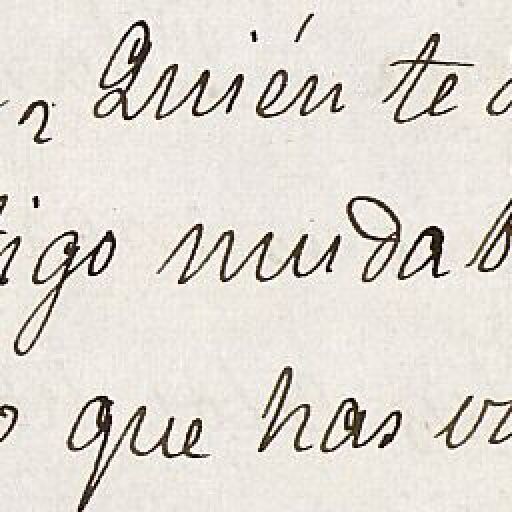 ¿Quién te
tigo muda
que has